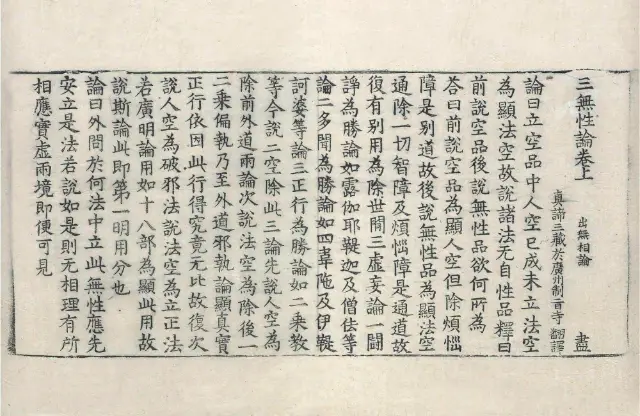 三無性論卷上 出無相論
真諦三藏於廣州制旨寺翻譯 盡
論曰立空品中人空已成未立法空
為顯法空故說諸法无自性品釋曰
前說空品後說無性品欲何所為
荅曰前說空品為顯人空但除煩惱
障是別道故後說無性品為顯法空
通除一切智障及煩惱障是通道故
復有別用為除世間三虛妄論一鬪
諍為勝論如露伽耶鞮迦及僧佉等
論二多聞為勝論如四韋陁及伊鞮
訶婆等論三正行為勝論如二乗教
等今說二空除此三論先說人空為
除前外道兩論次說法空為除後一
二乗偏執乃至外道邪執論顯真實
正行依因此行得究竟无比故復次
說人空為破邪法說法空為立正法
若廣明論用如十八部為顯此用故
說斯論此即第一明用分也
論曰外問於何法中立此無性應先
安立是法若說如是則无相理有所
相應實虛兩境即便可見